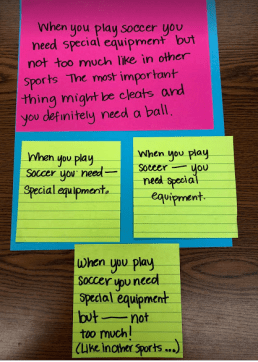 When you play soccer you
need special equipment but
not too much like in other
sports. The most important
thing might be cleats and
you definitely need a ball.
When you play
soccer you need—
special equipment.
When you play
soccer — you
need special
equipment.
When you play
soccer you need
special equipment
but — not
too much!
(Like in other sports...)